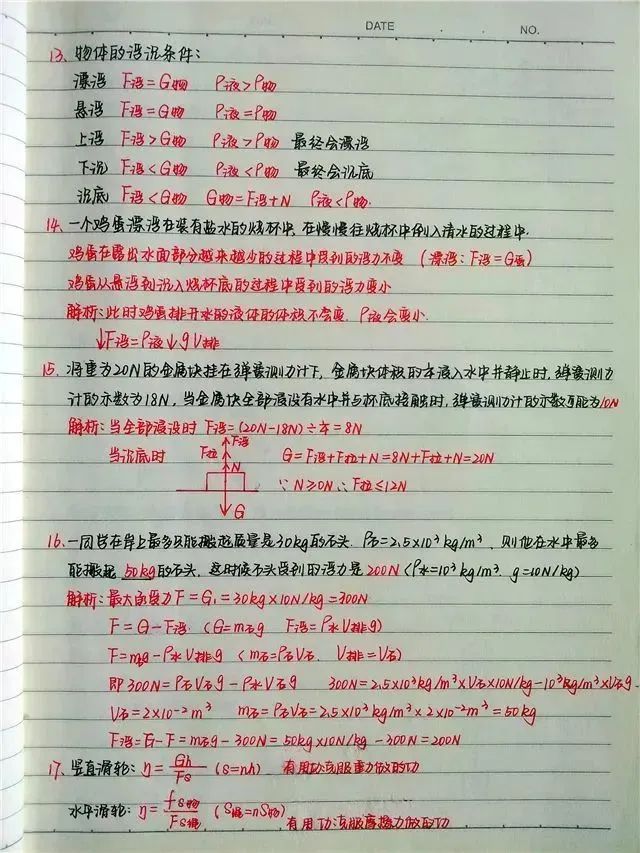 DATE . . NO.
13、物体的浮沉条件:
漂浮 F浮=G物 ρ液>ρ物
悬浮 F浮=G物 ρ液=ρ物
上浮 F浮>G物 ρ液>ρ物 最终会漂浮
下沉 F浮<G物 ρ液<ρ物 最终会沉底
沉底 F浮<G物 G物=F浮+N ρ液<ρ物.
14、一个鸡蛋漂浮在装有盐水的烧杯中,在慢慢往烧杯中倒入清水的过程中.
鸡蛋在露出水面部分越来越少的过程中受到的浮力不变 (漂浮:F浮=G蛋)
鸡蛋从悬浮到沉入烧杯底的过程中受到的浮力变小
解析:此时鸡蛋排开水的液体的体积不会变.ρ液会变小.
↓F浮=ρ液↓gV排
15、将重为20N的金属块挂在弹簧测力计下,金属块体积的 浸入水中并静止时,弹簧测力
计的示数为18N,当金属块全部浸没有水中并与杯底接触时,弹簧测力计的示数可能为10N
解析:当全部浸没时 F浮=(20N-18N)÷ =8N
当沉底时 F浮 F拉 N G G=F浮+F拉+N=8N+F拉+N=20N
∵N≥0N∴F拉≤12N
16、一同学在岸上最多只能搬起质量是30kg的石头.ρ石=2.5×10³kg/m³,则他在水中最多
能搬起 50kg的石头,这时候石头受到的浮力是200N(ρ水=10³kg/m³.g=10N/kg)
解析:最大的受力F=G₁=30kg×10N/kg=300N
F=G-F浮.(G=m石g F浮=ρ水V排g)
F=m石g-ρ水V排g (m石=ρ石V石. V排=V石)
即300N=ρ石V石g-ρ水V石g 300N=2.5×10³kg/m³×V石×10N/kg-10³kg/m³×V石g.
V石=2×10⁻²m³ m石=ρ石V石=2.5×10³kg/m³×2×10⁻²m³=50kg
F浮=G-F=m石g-300N=50kg×10N/kg-300N=200N
17、竖直滑轮:η=Gh/Fs (s=nh) 有用功克服重力做的功
水平滑轮:η=fs物/Fs绳 (S绳=nS物) 有用功克服摩擦力做的功